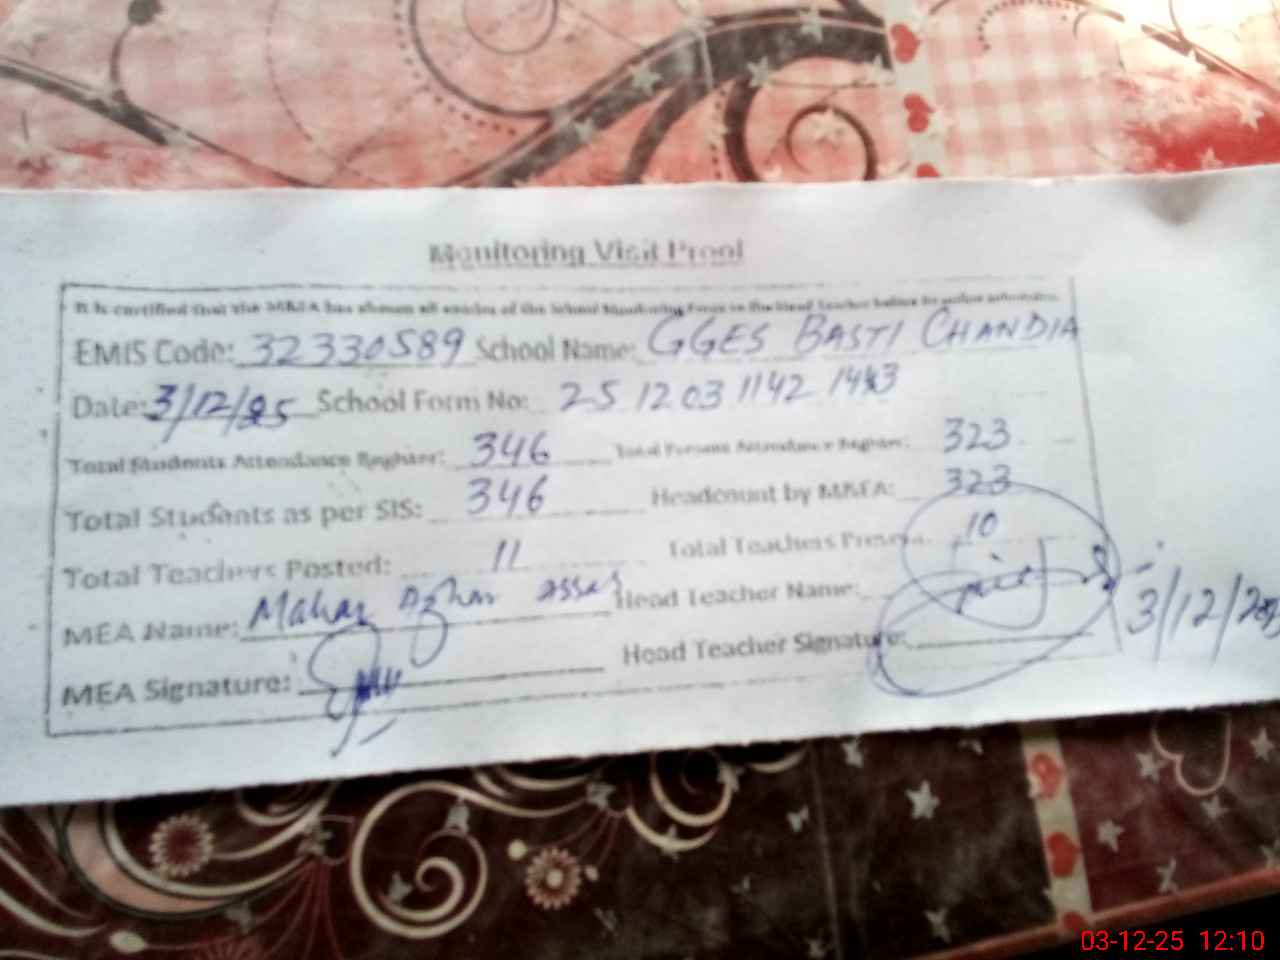 Monitoring Visit Proof
It is certified that the MEA has shown all entries of the School Monitoring Form to the Head Teacher before its online submission.
EMIS Code: 32330589 School Name: GGES BASTI CHANDIA
Date: 3/12/25 School Form No: 25 12 03 1142 1443
Total Students Attendance Register: 346 Total Present Attendance Register: 323
Total Students as per SIS: 346 Headcount by MEA: 323
Total Teachers Posted: 11 Total Teachers Present: 10
MEA Name: Mahar Azhar Head Teacher Name:
MEA Signature: Head Teacher Signature:
3/12/
03-12-25 12:10